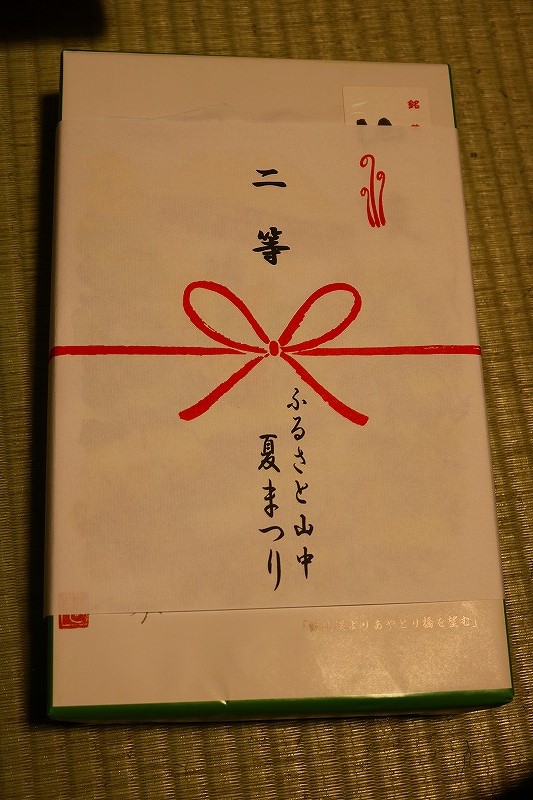 銘
二等
ふるさと山中
夏まつり
よりあやとり橋を望む」